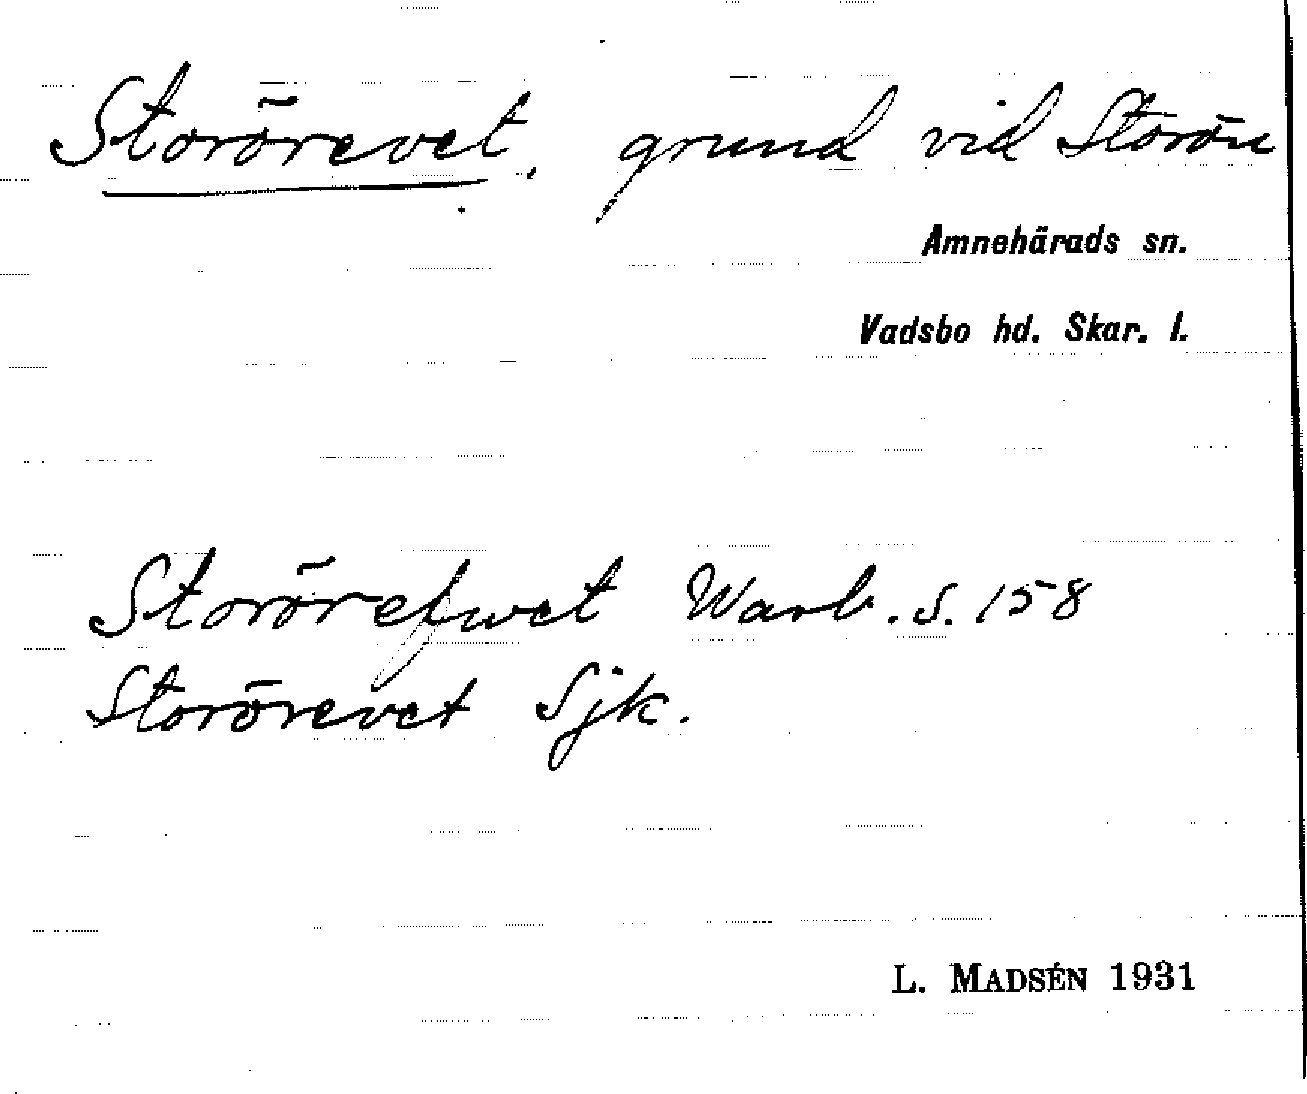 Storörevet, grund vid Storön
Amnehärads sn.
Vadsbo hd. Skar. l.
Storörefwet Warb. s. 158
Storörevet Sjk.
L. MADSÉN 1931